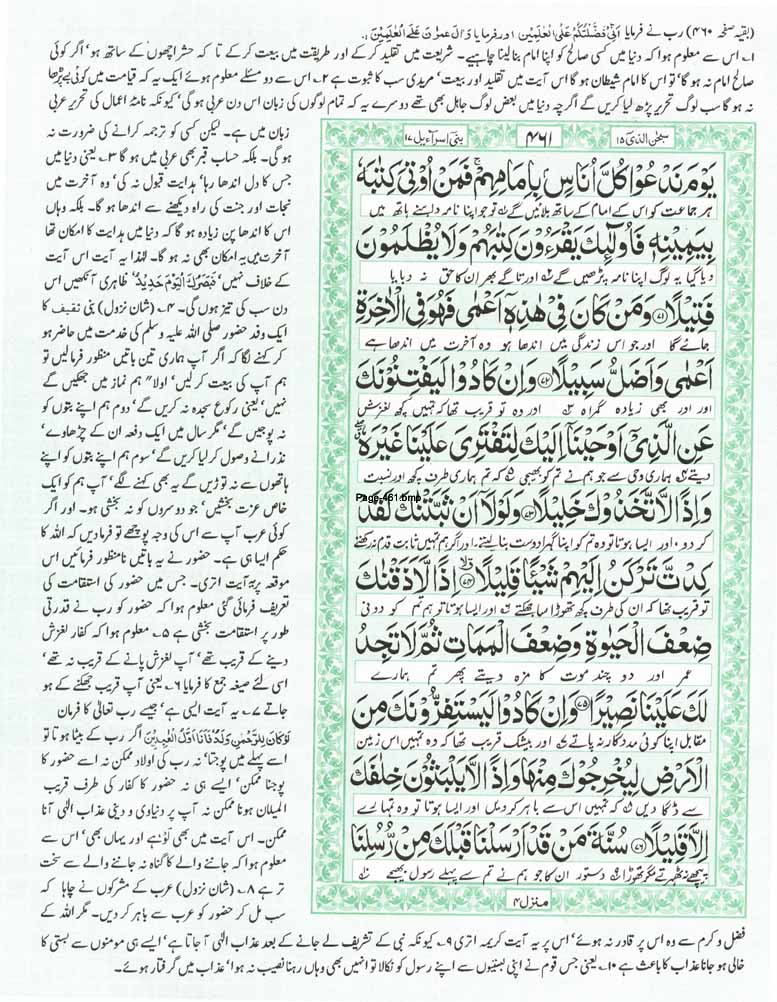 (بقیہ صفحہ ۴۶۰) رب نے فرمایا اَنِّیْ فَضَّلْتُكُمْ عَلَی الْعٰلَمِیْنَ اور فرمایا وَاٰلَ عِمْرٰنَ عَلَی الْعٰلَمِیْنَ۔
۱۔ اس سے معلوم ہوا کہ دنیا میں کسی صالح کو اپنا امام بنا لینا چاہیے۔ شریعت میں تقلید کر کے اور طریقت میں بیعت کر کے تا کہ حشر اچھوں کے ساتھ ہو، اگر کوئی
صالح امام نہ ہو گا، تو اس کا امام شیطان ہو گا اس آیت میں تقلید اور بیعت، مریدی سب کا ثبوت ہے ۲۔ اس سے دو مسئلے معلوم ہوئے ایک یہ کہ قیامت میں کوئی بے پڑھا
نہ ہو گا سب لوگ تحریر پڑھ لیا کریں گے اگرچہ دنیا میں بعض لوگ جاہل بھی تھے دوسرے یہ کہ تمام لوگوں کی زبان اس دن عربی ہو گی، کیونکہ نامۂ اعمال کی تحریر عربی
زبان میں ہے۔ لیکن کسی کو ترجمہ کرانے کی ضرورت نہ
ہو گی۔ بلکہ حساب قبر بھی عربی میں ہو گا ۳۔ یعنی دنیا میں
جس کا دل اندھا رہا، ہدایت قبول نہ کی، وہ آخرت میں
نجات اور جنت کی راہ دیکھنے سے اندھا ہو گا۔ بلکہ وہاں
اس کا اندھا پن زیادہ ہو گا کہ دنیا میں ہدایت کا امکان تھا
آخرت میں یہ امکان بھی نہ ہو گا۔ لہٰذا یہ آیت اس آیت
کے خلاف نہیں، فَبَصَرُكَ الْیَوْمَ حَدِیْدٌ، ظاہری آنکھیں اس
دن سب کی تیز ہوں گی۔ ۴۔ (شان نزول) بنی ثقیف کا
ایک وفد حضور صلی اللہ علیہ وسلم کی خدمت میں حاضر ہو
کر کہنے لگا کہ اگر آپ ہماری تین باتیں منظور فرمالیں تو
ہم آپ کی بیعت کر لیں، اولاً یہ ہم نماز میں جھکیں گے
نہیں، یعنی رکوع سجدہ نہ کریں گے، دوم ہم اپنے بتوں کو
نہ پوجیں گے، مگر سال میں ایک دفعہ ان کے چڑھاوے،
نذرانے وصول کر لیا کریں گے، سوم ہم اپنے بتوں کو اپنے
ہاتھوں سے نہ توڑیں گے یہ بھی کہنے لگے، آپ ہم کو ایک
خاص عزت بخشیں، جو دوسروں کو نہ بخشی ہو۔ اور اگر
کوئی عرب آپ سے اس کی وجہ پوچھے تو فرمادیں کہ اللہ کا
حکم ایسا ہی ہے۔ حضور نے یہ باتیں نامنظور فرمائیں اس
موقعہ پر یہ آیت اتری۔ جس میں حضور کی استقامت کی
تعریف فرمائی گئی معلوم ہوا کہ حضور کو رب نے قدرتی
طور پر استقامت بخشی ہے ۵۔ معلوم ہوا کہ کفار لغزش
دینے کے قریب تھے، آپ لغزش پانے کے قریب نہ تھے،
اسی لئے صیغہ جمع کا فرمایا ۶۔ یعنی آپ قریب جھکنے کے ہو
جاتے ۷۔ یہ آیت ایسی ہے، جیسے رب تعالیٰ کا فرمان
لَوْ كَانَ لِلرَّحْمٰنِ وَلَدٌ فَاَنَا اَوَّلُ الْعٰبِدِیْنَ اگر رب کے بیٹا ہوتا تو
اسے پہلے میں پوجتا، نہ رب کی اولاد ممکن نہ اسے حضور کا
پوجنا ممکن، ایسے ہی نہ حضور کا کفار کی طرف قریب
المیلان ہونا ممکن نہ آپ پر دنیاوی و دینی عذاب الٰہی آنا
ممکن۔ اس آیت میں بھی لَوْ ہے اور یہاں بھی، اس سے
معلوم ہوا کہ جاننے والے کا گناہ نہ جاننے والے سے سخت
تر ہے ۸۔ (شان نزول) عرب کے مشرکوں نے چاہا کہ
سب مل کر حضور کو عرب سے باہر کر دیں۔ مگر اللہ کے
سبحٰن الذی ۱۵
۴۶۱
بنی اسرآءیل ۱۷
یَوْمَ نَدْعُوْا كُلَّ اُنَاسٍۭ بِاِمَامِهِمْ ۚ فَمَنْ اُوْتِیَ كِتٰبَهٗ
ہر جماعت کو اس کے امام کے ساتھ بلائیں گے ۱ تو جو اپنا نامہ داہنے ہاتھ میں
بِیَمِیْنِهٖ فَاُولٰٓىِٕكَ یَقْرَءُوْنَ كِتٰبَهُمْ وَلَا یُظْلَمُوْنَ
دیا گیا یہ لوگ اپنا نامہ پڑھیں گے ۲ اور تاگے بھر ان کا حق نہ دبایا
فَتِیْلًا ﴿۷۱﴾ وَمَنْ كَانَ فِیْ هٰذِهٖۤ اَعْمٰی فَهُوَ فِی الْاٰخِرَةِ
جائے گا اور جو اس زندگی میں اندھا ہو وہ آخرت میں اندھا ہے
اَعْمٰی وَاَضَلُّ سَبِیْلًا ﴿۷۲﴾ وَاِنْ كَادُوْا لَیَفْتِنُوْنَكَ
اور اور بھی زیادہ گمراہ ۳ اور وہ تو قریب تھا کہ تمہیں کچھ لغزش
عَنِ الَّذِیْۤ اَوْحَیْنَاۤ اِلَیْكَ لِتَفْتَرِیَ عَلَیْنَا غَیْرَهٗ
دیتے ۴ ہماری وحی سے جو ہم نے تم کو بھیجی ۵ کہ تم ہماری طرف کچھ اور نسبت
Page-461.bmp
وَاِذًا لَّاتَّخَذُوْكَ خَلِیْلًا ﴿۷۳﴾ وَلَوْلَاۤ اَنْ ثَبَّتْنٰكَ لَقَدْ
کر دو، اور ایسا ہوتا تو وہ تم کو اپنا گہرا دوست بنا لیتے، اور اگر ہم تمہیں ثابت قدم نہ رکھتے
كِدْتَّ تَرْكَنُ اِلَیْهِمْ شَیْـًٔا قَلِیْلًا ﴿۷۴﴾ اِذًا لَّاَذَقْنٰكَ
تو قریب تھا کہ ان کی طرف کچھ تھوڑا سا جھکتے ۶ اور ایسا ہوتا تو ہم تم کو دونی
ضِعْفَ الْحَیٰوةِ وَضِعْفَ الْمَمَاتِ ثُمَّ لَا تَجِدُ
عمر اور دو چند موت کا مزہ دیتے پھر تم ہمارے
لَكَ عَلَیْنَا نَصِیْرًا ﴿۷۵﴾ وَاِنْ كَادُوْا لَیَسْتَفِزُّوْنَكَ مِنَ
مقابل اپنا کوئی مددگار نہ پاتے ۷ اور بیشک قریب تھا کہ وہ تمہیں اس زمین
الْاَرْضِ لِیُخْرِجُوْكَ مِنْهَا وَاِذًا لَّا یَلْبَثُوْنَ خِلٰفَكَ
سے ڈگا دیں ۸ کہ تمہیں اس سے باہر کر دیں اور ایسا ہوتا تو وہ تمہارے
اِلَّا قَلِیْلًا ﴿۷۶﴾ سُنَّةَ مَنْ قَدْ اَرْسَلْنَا قَبْلَكَ مِنْ رُّسُلِنَا
پیچھے نہ ٹھہرتے مگر تھوڑا ۹ دستور ان کا جو ہم نے تم سے پہلے رسول بھیجے ۱۰
منزل ۴
فضل و کرم سے وہ اس پر قادر نہ ہوئے، اس پر یہ آیت کریمہ اتری ۹۔ کیونکہ نبی کے تشریف لے جانے کے بعد عذاب الٰہی آ جاتا ہے، ایسے ہی مومنوں سے بستی کا
خالی ہو جانا عذاب کا باعث ہے ۱۰۔ یعنی جس قوم نے اپنی بستیوں سے اپنے رسول کو نکالا تو انہیں بھی وہاں رہنا نصیب نہ ہوا، عذاب میں گرفتار ہوئے۔